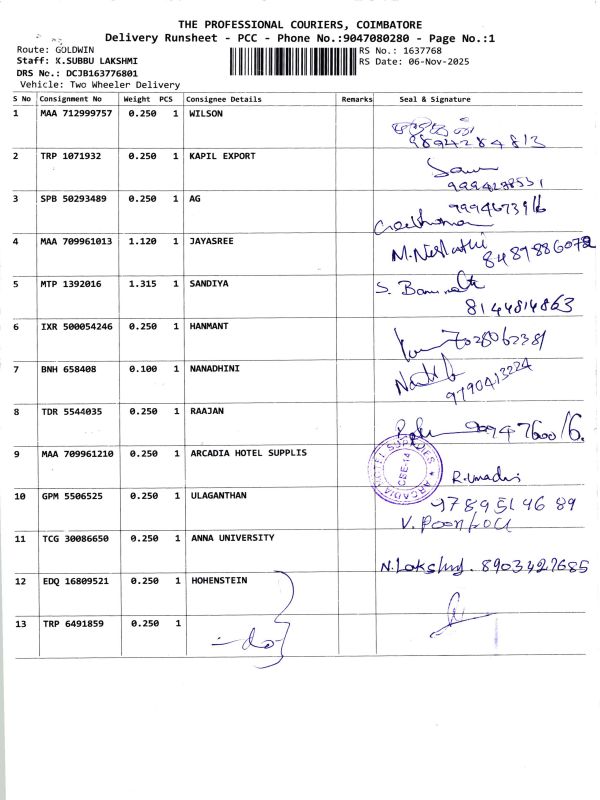 THE PROFESSIONAL COURIERS, COIMBATORE
Delivery Runsheet - PCC - Phone No.:9047080280 - Page No.:1
Route: GOLDWIN
RS No.: 1637768
Staff: K.SUBBU LAKSHMI
RS Date: 06-Nov-2025
DRS No.: DCJB163776801
Vehicle: Two Wheeler Delivery
S No Consignment No Weight PCS Consignee Details Remarks Seal & Signature
1 MAA 712999757 0.250 1 WILSON
9894284813
2 TRP 1071932 0.250 1 KAPIL EXPORT
3 SPB 50293489 0.250 1 AG
4 MAA 709961013 1.120 1 JAYASREE
8489886078
5 MTP 1392016 1.315 1 SANDIYA
8144814863
6 IXR 500054246 0.250 1 HANMANT
7 BNH 658408 0.100 1 NANADHINI
9790413224
8 TDR 5544035 0.250 1 RAAJAN
9 MAA 709961210 0.250 1 ARCADIA HOTEL SUPPLIS
ARCADIA HOTEL SUPPLIES
CBE-14
R.Umadevi
10 GPM 5506525 0.250 1 ULAGANTHAN
9789514689
11 TCG 30086650 0.250 1 ANNA UNIVERSITY
N.Lakshmy. 8903427685
12 EDQ 16809521 0.250 1 HOHENSTEIN
13 TRP 6491859 0.250 1
-do-